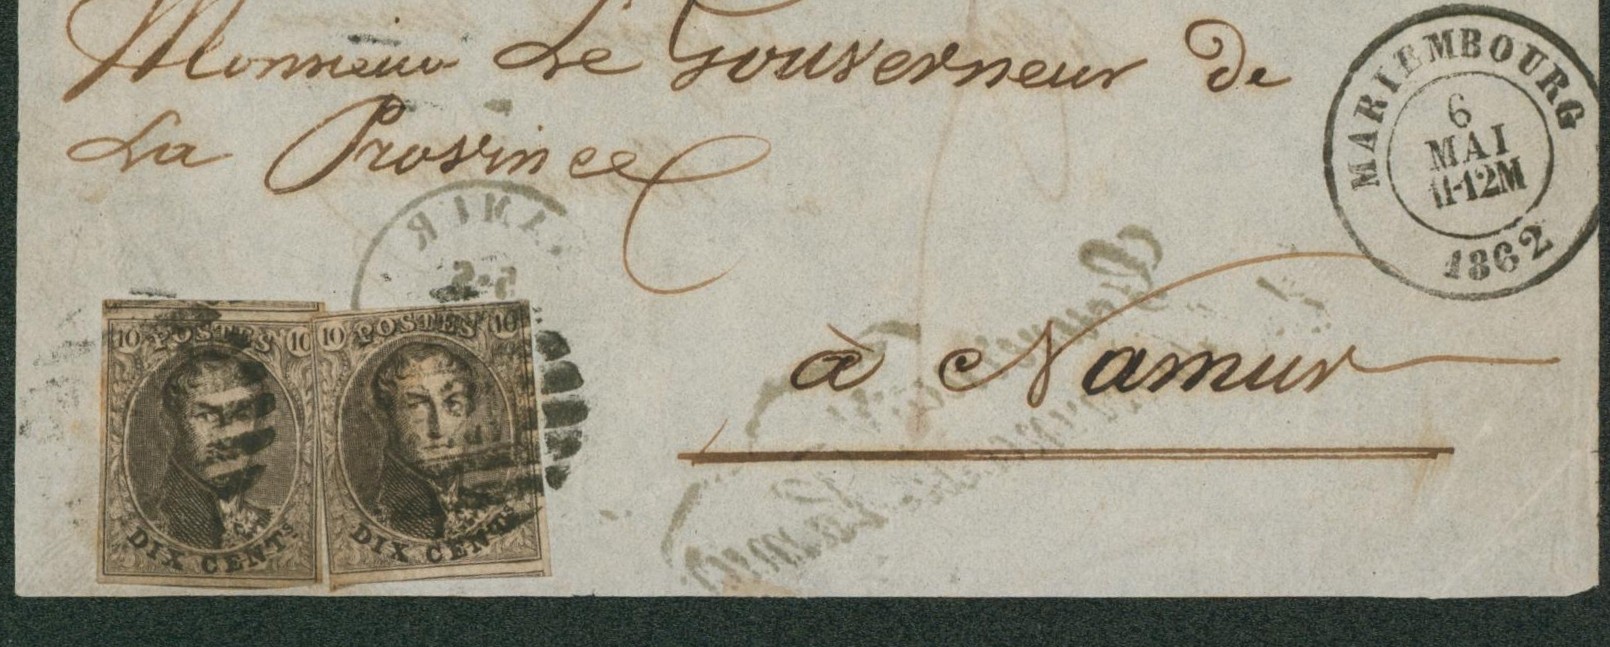 Monsieur Le Gouverneur de
La Province
à Namur
MARIEMBOURG
6
MAI
11-12M
1862
10 POSTES 10
DIX CENTS
10 POSTES 10
DIX CENTS